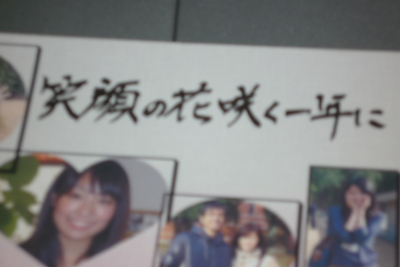 笑顔の花咲く一年に